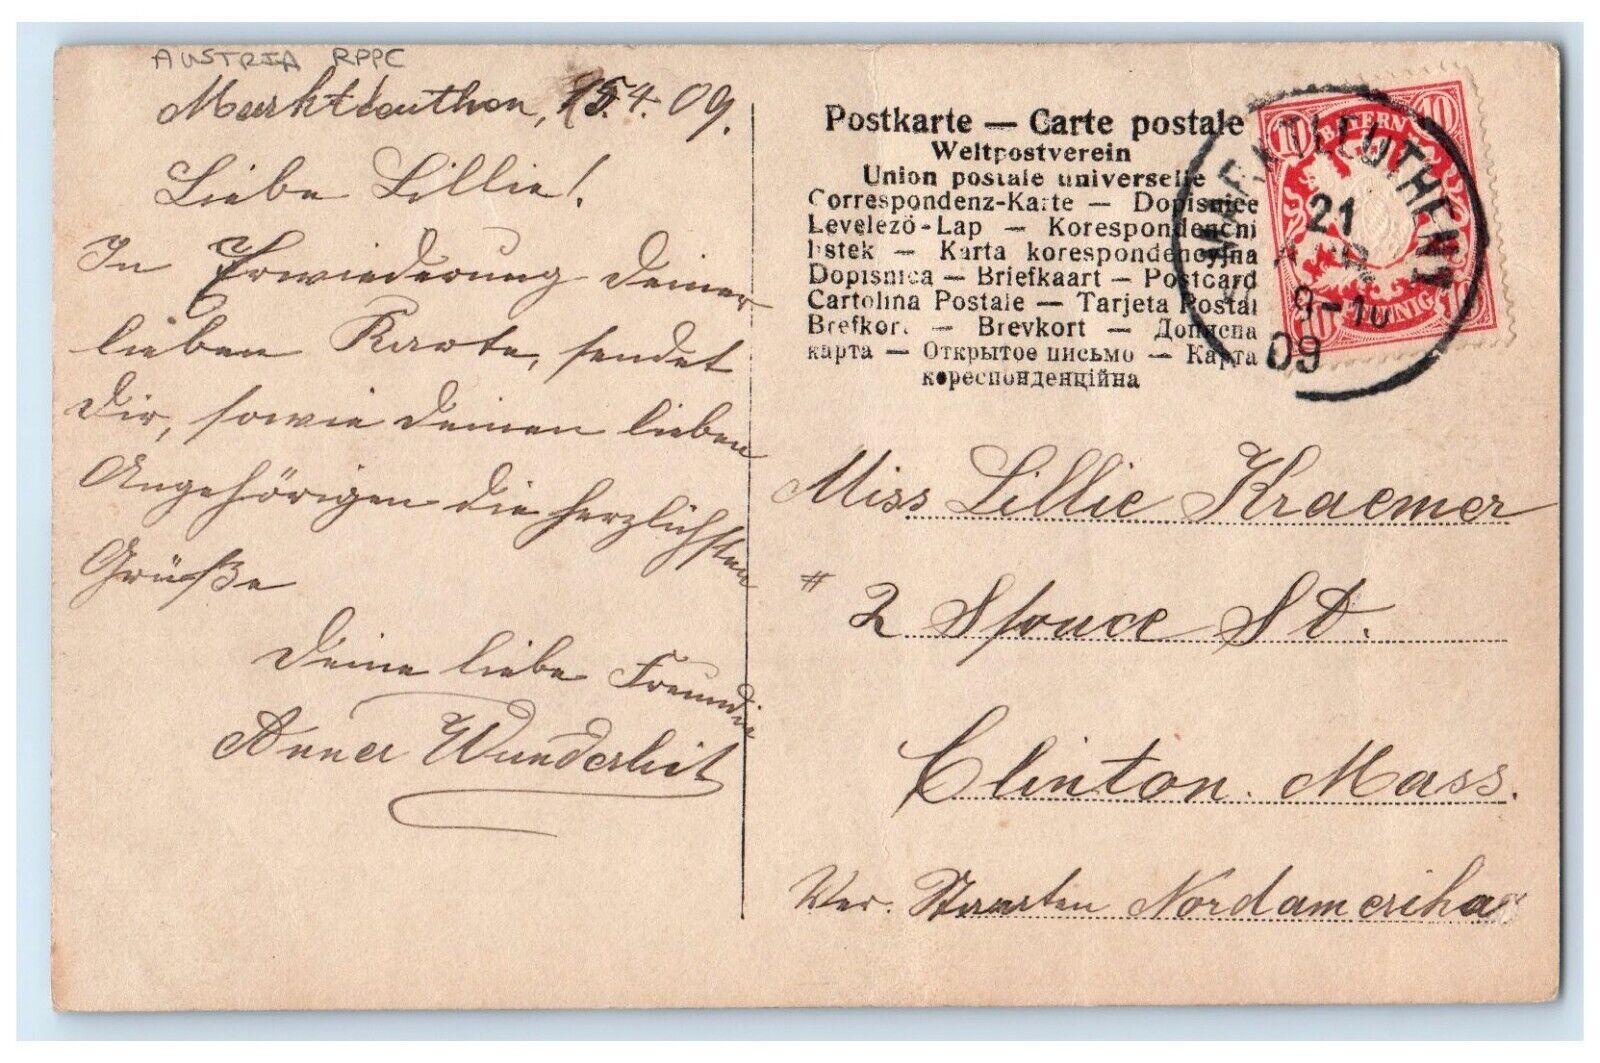 AUSTRIA RPPC
Marktleuthen, 15.4.09.
Liebe Lillie!
In Erwiederung deiner
lieben Karte, sendet
Dir, sowie deinen lieben
Angehörigen die herzlichsten
Grüße
Deine liebe Freundin
Anna
Postkarte — Carte postale
Weltpostverein
Union postale universelle
Correspondenz-Karte — Dopisnice
Levelező-Lap — Korespondencni
listek — Karta korespondencyjna
Dopisnica — Briefkaart — Postcard
Cartolina Postale — Tarjeta Postal
Brefkort — Brevkort — Дописна
карта — Открытое письмо — Карта
кореспонденційна
10 BAYERN 10
10 PFENNIG 10
MARKTLEUTHEN 1
21
APR
9-10
09
Miss Lillie Kraemer
# 2 Spruce St.
Clinton. Mass.
Ver. Staaten Nordamerika